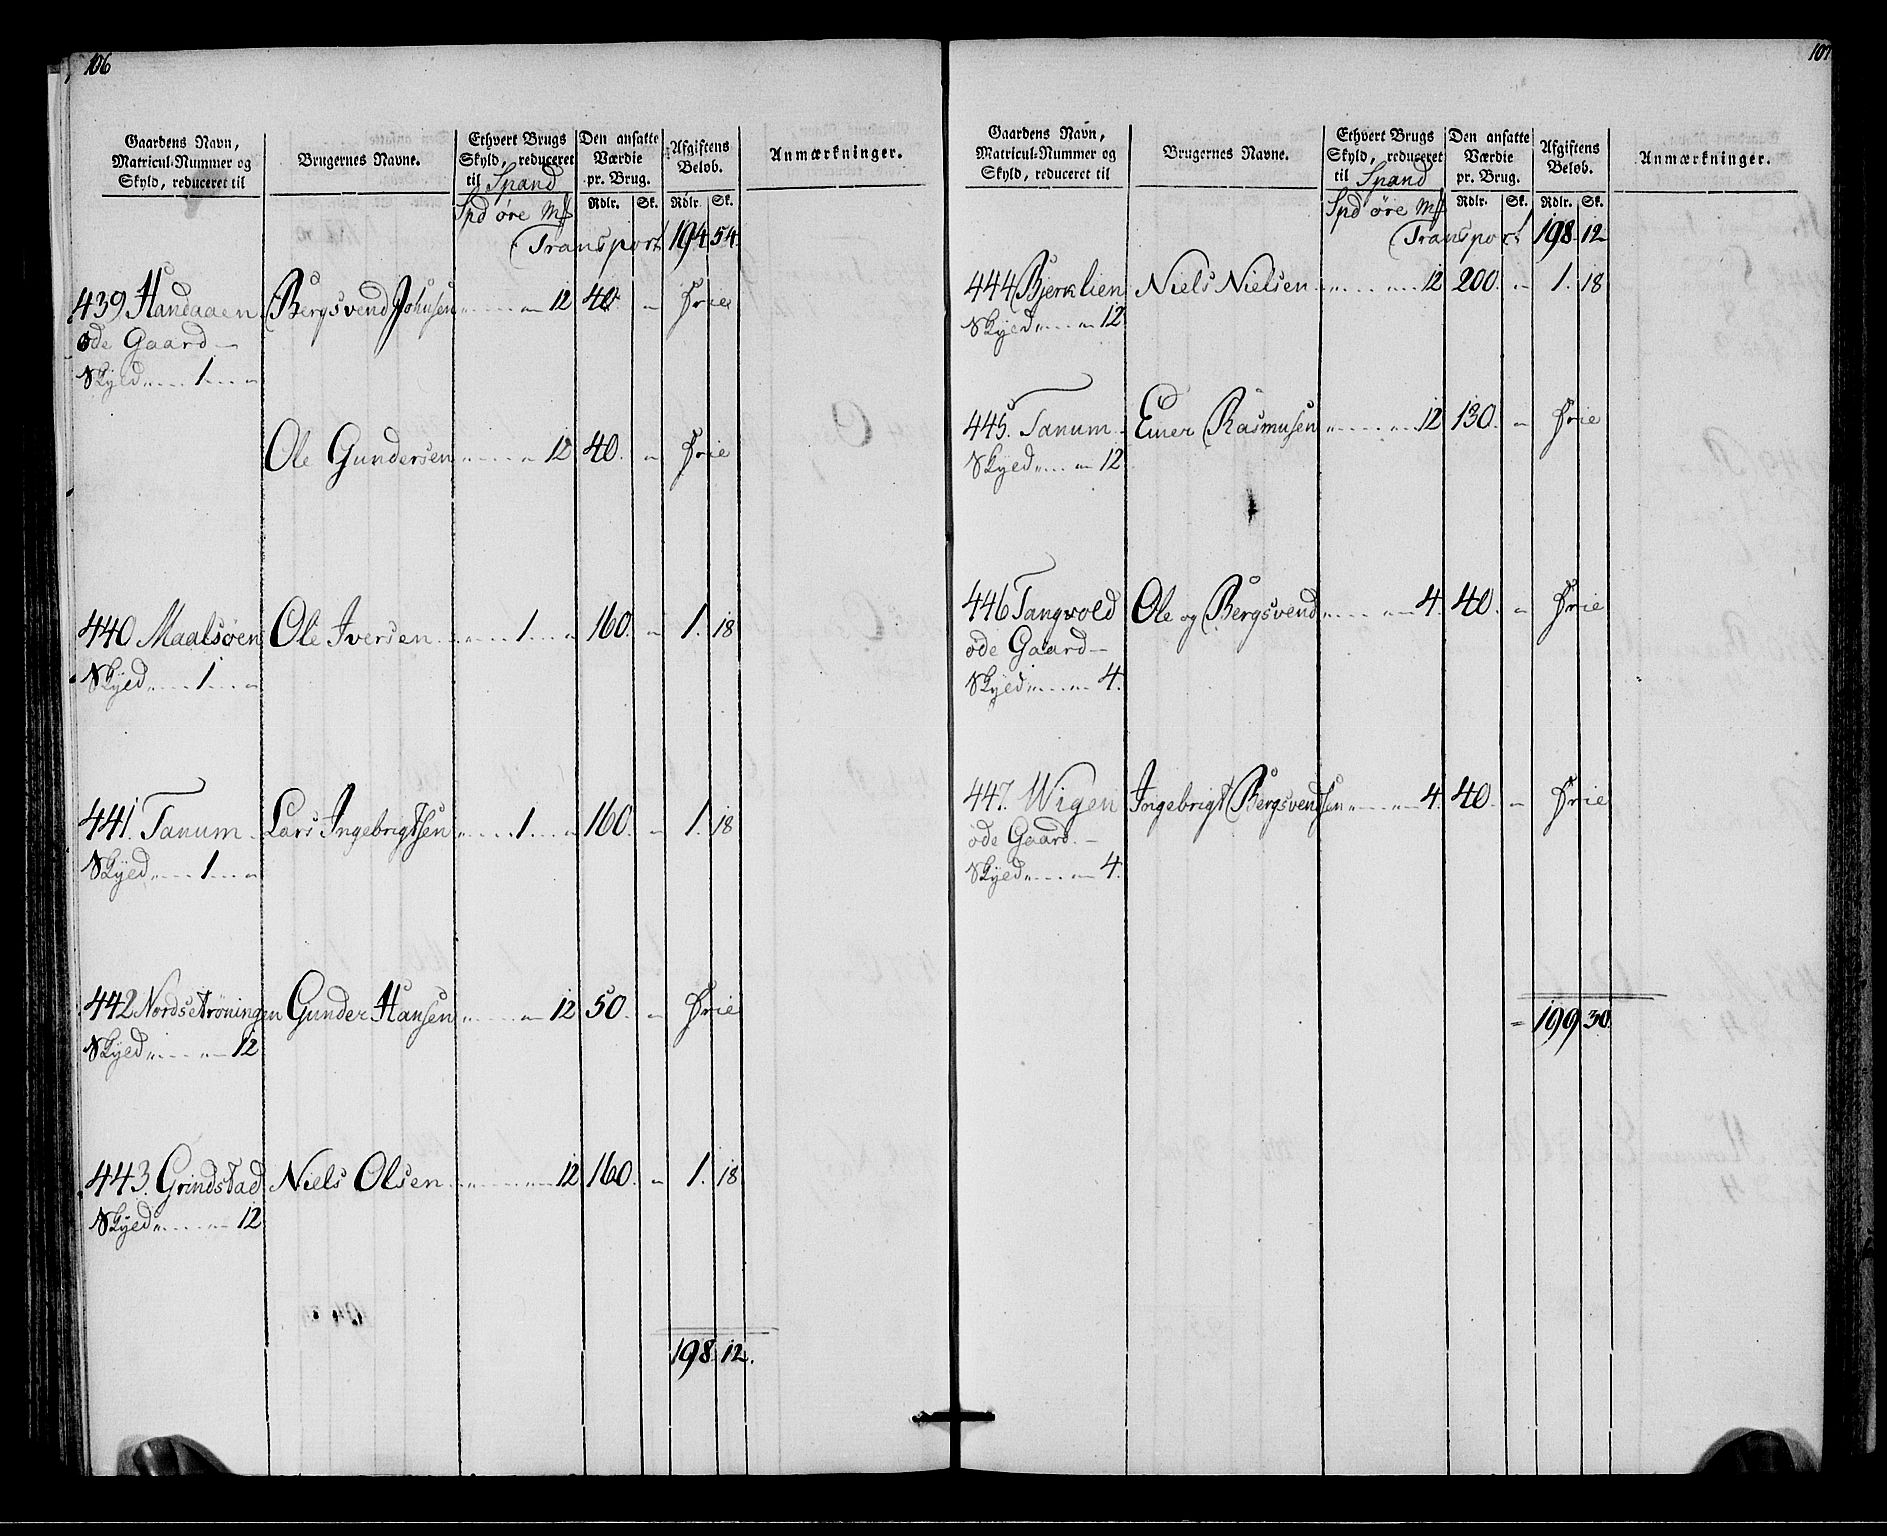 106
Gaardens Navn, Matricul-Nummer og Skyld, reduceret til
Brugernes Navne.
Ethvert Brugs Skyld, reduceret til Spand
Den ansatte Værdie pr. Brug.
Afgiftens Beløb.
Anmærkninger.
Spd øre Mk Rdlr. Sk. Rdlr. Sk.
Transport 194 54
439 Handaaen Bergsvend Johnsen " " 12 40 " Frie
øde Gaard
Skyld " 1 "
Ole Gundersen " " 12 40. " Frie
440 Maalsøen Ole Iversen " 1 " 160. " 1. 18
Skyld " 1 "
441. Tanum Lars Ingebrigtsen " 1 " 160. " 1. 18
Skyld " 1 "
442 Nordsetrøningen Gunder Hansen " " 12 50. " Frie
Skyld " " 12
443. Grindstad Niels Olsen " " 12 160. " 1. 18
Skyld " " 12
198 12.
107
Gaardens Navn, Matricul-Nummer og Skyld, reduceret til
Brugernes Navne.
Ethvert Brugs Skyld, reduceret til Spand
Den ansatte Værdie pr. Brug.
Afgiftens Beløb.
Anmærkninger.
Spd øre Mk Rdlr. Sk. Rdlr. Sk.
Transport 198 12
444 Bjerklien Niels Nielsen " " 12 200. " 1. 18
Skyld " " 12
445. Tanum Einer Rasmusen " " 12 130. " Frie
Skyld " " 12
446 Tangvold Ole og Bergsvend " " 4. 40. " Frie
øde Gaard
Skyld " " 4.
447. Wigen Ingebrigt Bergsvendsen " " 4. 40. " Frie
øde Gaard.
Skyld " " 4.
= 199 30